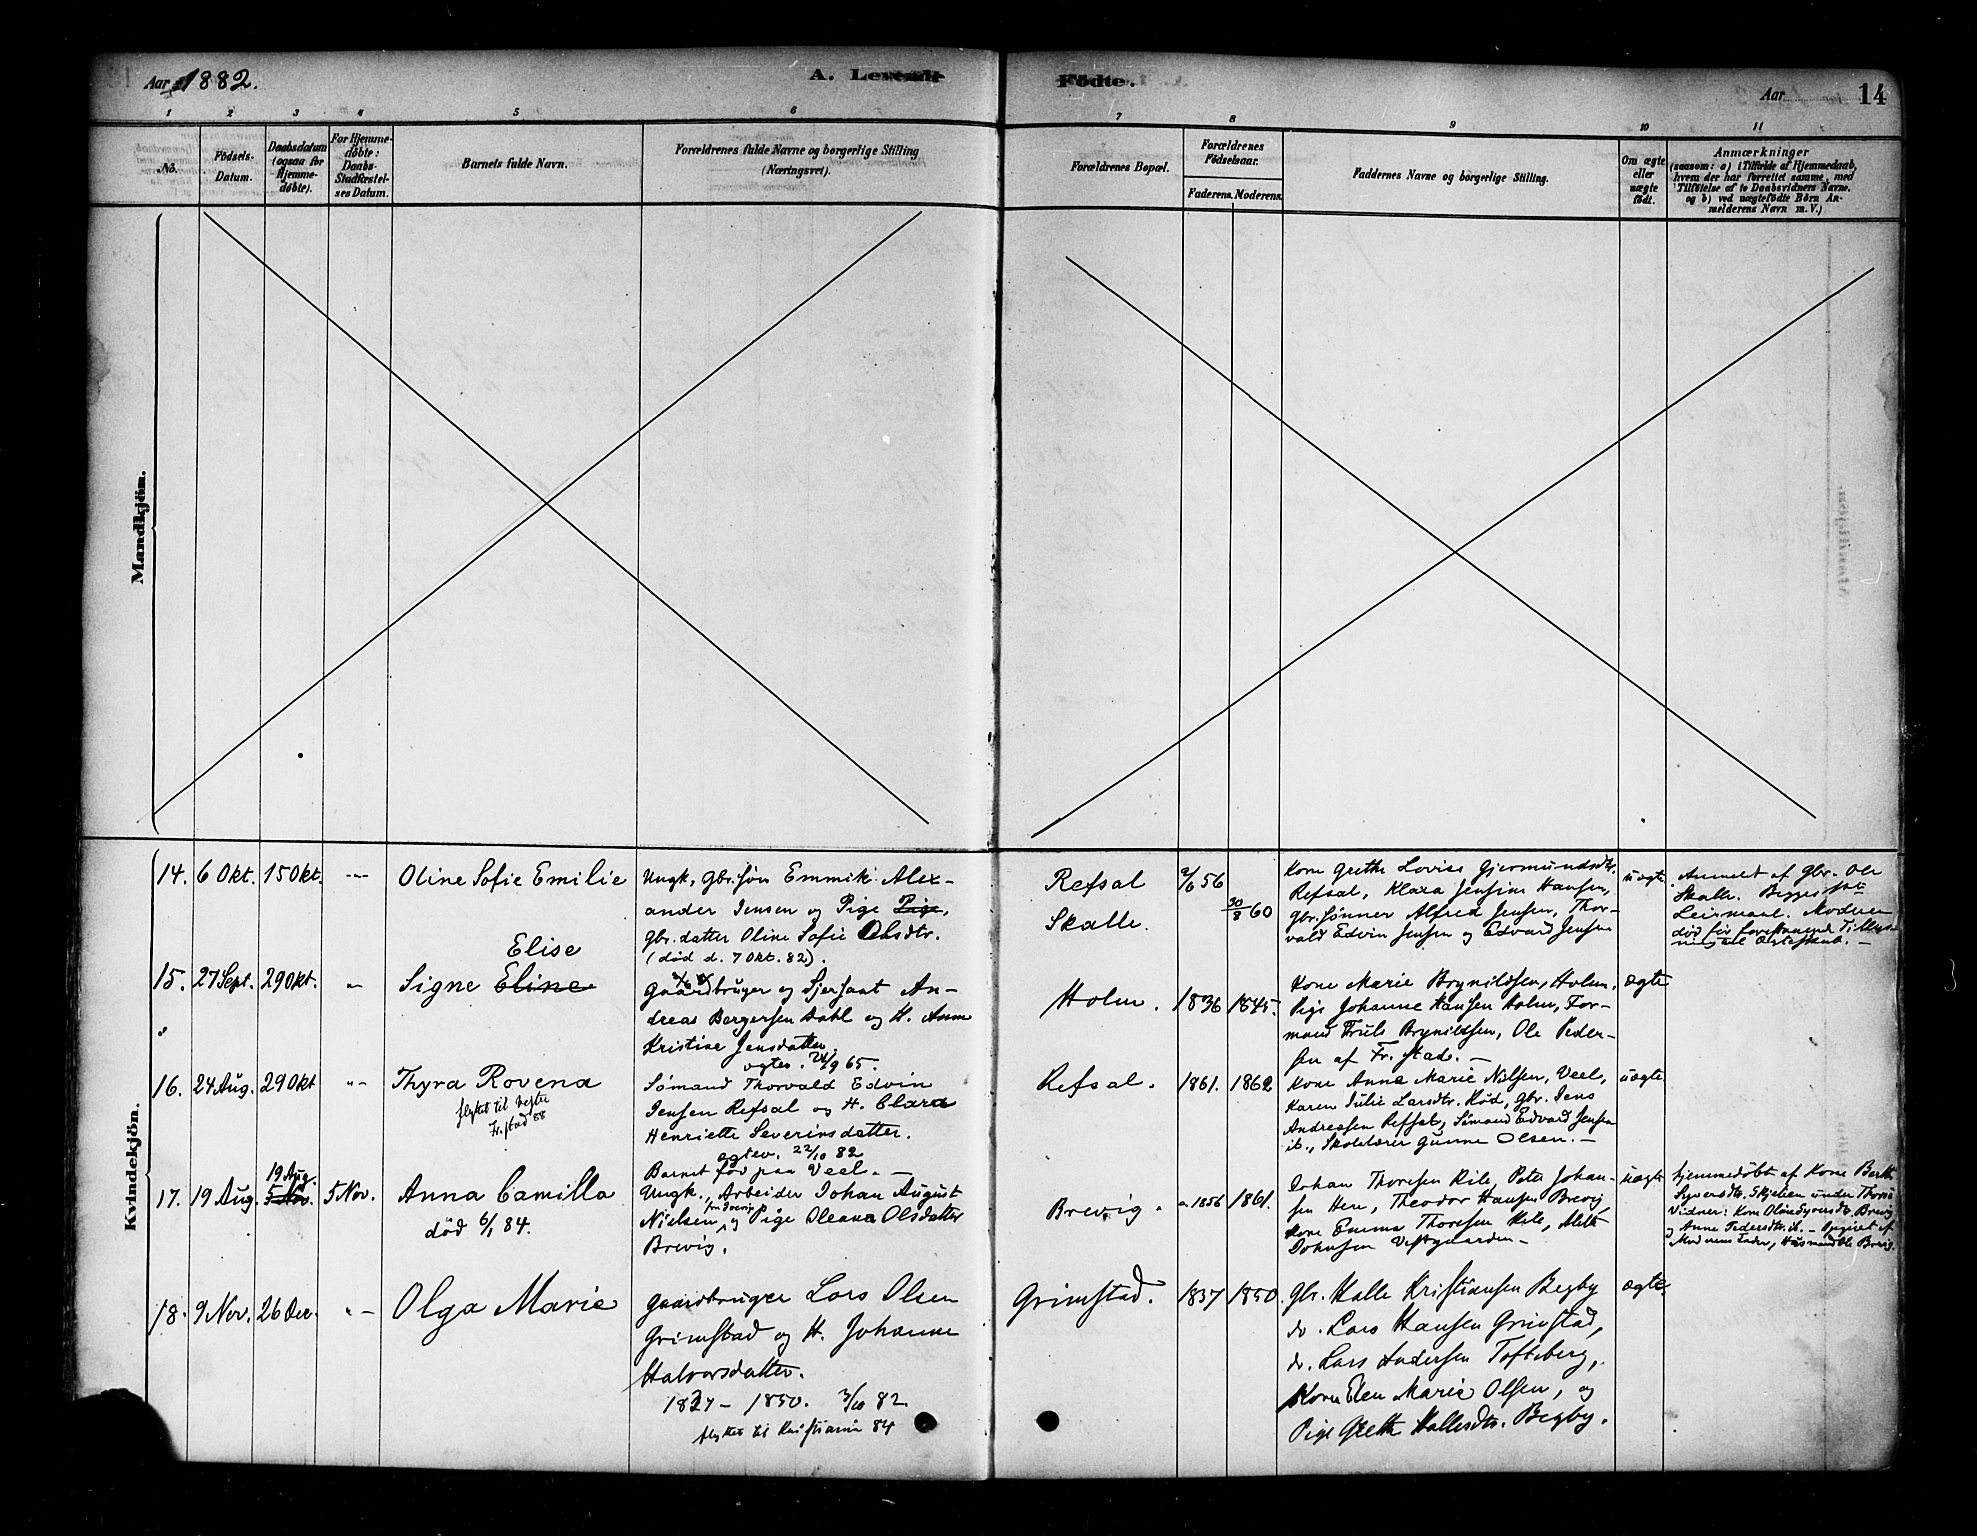 Aar 1882.
A. Levende
Födte.
Aar
14
1 2 3 4 5 6 7 8 9 10 11
No.
Födsels-
Datum.
Daabsdatum
(ogsaa for
Hjemme-
döbte).
For Hjemme-
döbte:
Daabs-
Stadfæstel-
ses Datum.
Barnets fulde Navn.
Forældrenes fulde Navne og borgerlige Stilling
(Næringsvei).
Forældrenes Bopæl.
Forældrenes
Födselsaar.
Faderens. Moderens.
Faddernes Navne og borgerlige Stilling.
Om ægte
eller
uægte
födt.
Anmærkninger
(saasom: a) i Tilfælde af Hjemmedaab,
hvem der har forrettet samme, med
Tilföielse af to Daabsvidners Navne.
og b) ved uægtefödte Börn An-
melderens Navn m. V.)
Mandkjön.
Kvindekjön.
14. 6 Okt. 15 Okt. -"- Oline Sofie Emilie
Ungk. Gbr.søn Emmik Alex-
ander Jensen og Pige Pige,
Gbr.datter Oline Sofie Olsdtr.
(død d. 7 Okt. 82).
Refsal
Skalle.
2/6 56
30/8 60
Kone Grethe Lovise Gjermundsdtr.
Refsal, Klara Jensine Hansen,
Gbr.sønner Alfred Jensen, Thor-
vald Edvin Jensen og Edvard Jensen
uægte
Anmeldt af Gbr. Ole
Skalle. Begges 1ste
Leiermaal. Moderen
død før
15. 27 Sept. 29 Okt. "- Signe Eline
Elise
Gaardbruger og Sjersant An-
dreas Børgersen Dahl og H. Anne
Kristine Jensdatter.
Holm.
1836 1845.
Kone Marie Brynildsen, Holm,
Pige Johanne Hansen Holm, For-
mand Truls Brynildsen, Ole Peder-
sen af Fr.stad. -
ægte
16. 24 Aug. 29 Okt "- Thyra Rovena
flyttet til Vestre
Fr.stad 88
Sømand Thorvald Edvin
Jensen Refsal og H. Clara
Henriette Severinsdatter.
ægtev. 22/10 82
Barnet før paa Veel. -
Refsal.
1861. 1862
Kone Anne Marie Nilsen, Veel,
Karen Julie Larsdtr. Rød, Gbr. Jens
Andreassen Refsal, Sømand Edvard Jensen
ib., Skolelærer Gunne Olsen. -
uægte
17. 19 Aug. 19 Aug. 5 Nov. 5 Nov. Anna Camilla
død 6/1 84.
Ungk., Arbeider Johan August
Nielsen og Pige Oleana Olsdatter
Brevig.
Brevig.
1856 1861.
Johan Thoresen Kile, Peter Johan-
sen Here, Theodor Hansen Brevig
Kone Emma Thoresen Kile,
Johnsen Vestgaarden -
uægte
Hjemmedøbt af Kone Berthe
Syversdtr. Skjelien under Thorsø
Vidner: Kone Oline Syversdtr. Brevig
og Anne Pedersdtr. ib. - Opgivet af
Moderens Fader, Husmand Ole Brevig.
18. 9 Nov. 26 Dec. "- Olga Marie
Gaardbruger Lars Olsen
Grimstad og H. Johanne
Halvorsdatter.
1837 - 1850. 3/10 82.
flyttet til Kristiania 84
Grimstad.
1837 1850.
Gbr. Halle Kristiansen Begby
do. Lars Hansen Grimstad,
do. Lars Andersen Tofteberg,
Kone Elen Marie Olsen, og
Pige Grethe Hallesdtr. Begby.
ægte